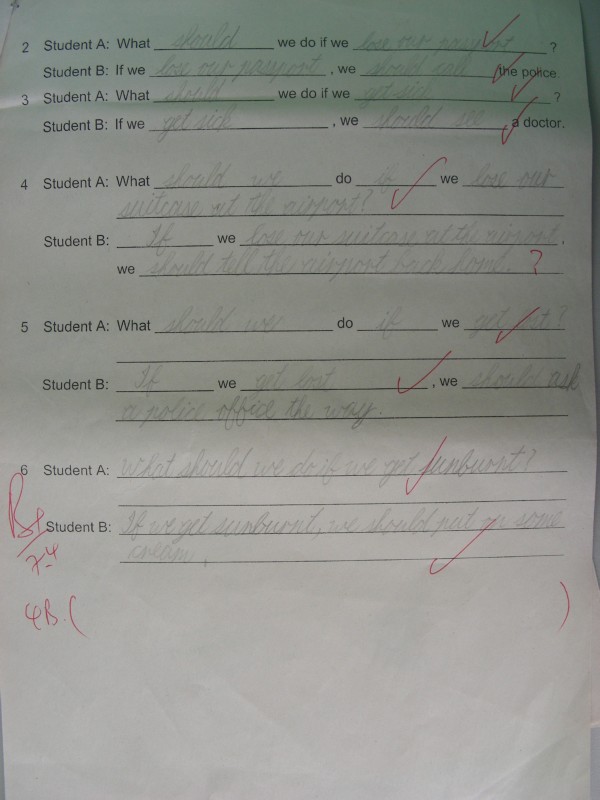 2 Student A: What should we do if we lose our passport ?
Student B: If we lose our passport , we should call the police.
3 Student A: What should we do if we get sick ?
Student B: If we get sick , we should see a doctor.
4 Student A: What should we do if we lose our
suitcase at the airport?
Student B: If we lose our suitcase at the airport ,
we should tell the airport back home. ?
5 Student A: What should we do if we get lost?
Student B: If we get lost , we should ask
a police office the way.
6 Student A: What should we do if we get sunburnt?
Student B: If we get sunburnt, we should put on some
cream.
B+
7-4
4B. ( )